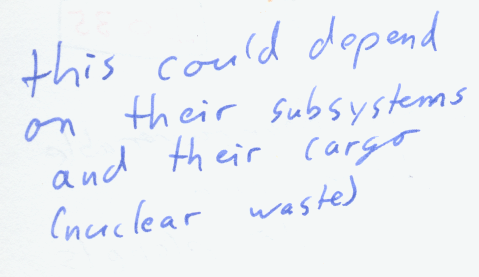 this could depend
on their subsystems
and their cargo
(nuclear waste)